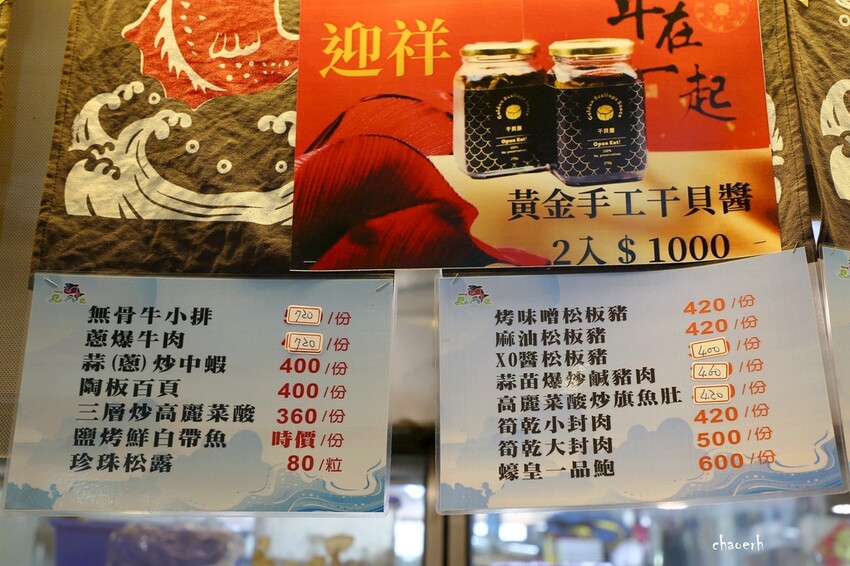 迎祥
在
一起
Golden Scallop Sauce
干貝醬
Open Eat!
100%
Golden Scallop Sauce
干貝醬
Open Eat!
100%
黃金手工干貝醬
2入 $1000
無骨牛小排 720/份
蔥爆牛肉 720/份
蒜(蔥)炒中蝦 400/份
陶板百頁 400/份
三層炒高麗菜酸 360/份
鹽烤鮮白帶魚 時價/份
珍珠松露 80/粒
烤味噌松板豬 420/份
麻油松板豬 420/份
XO醬松板豬 400/份
蒜苗爆炒鹹豬肉 460/份
高麗菜酸炒旗魚肚 420/份
筍乾小封肉 420/份
筍乾大封肉 500/份
蠔皇一品鮑 600/份
chaoerh